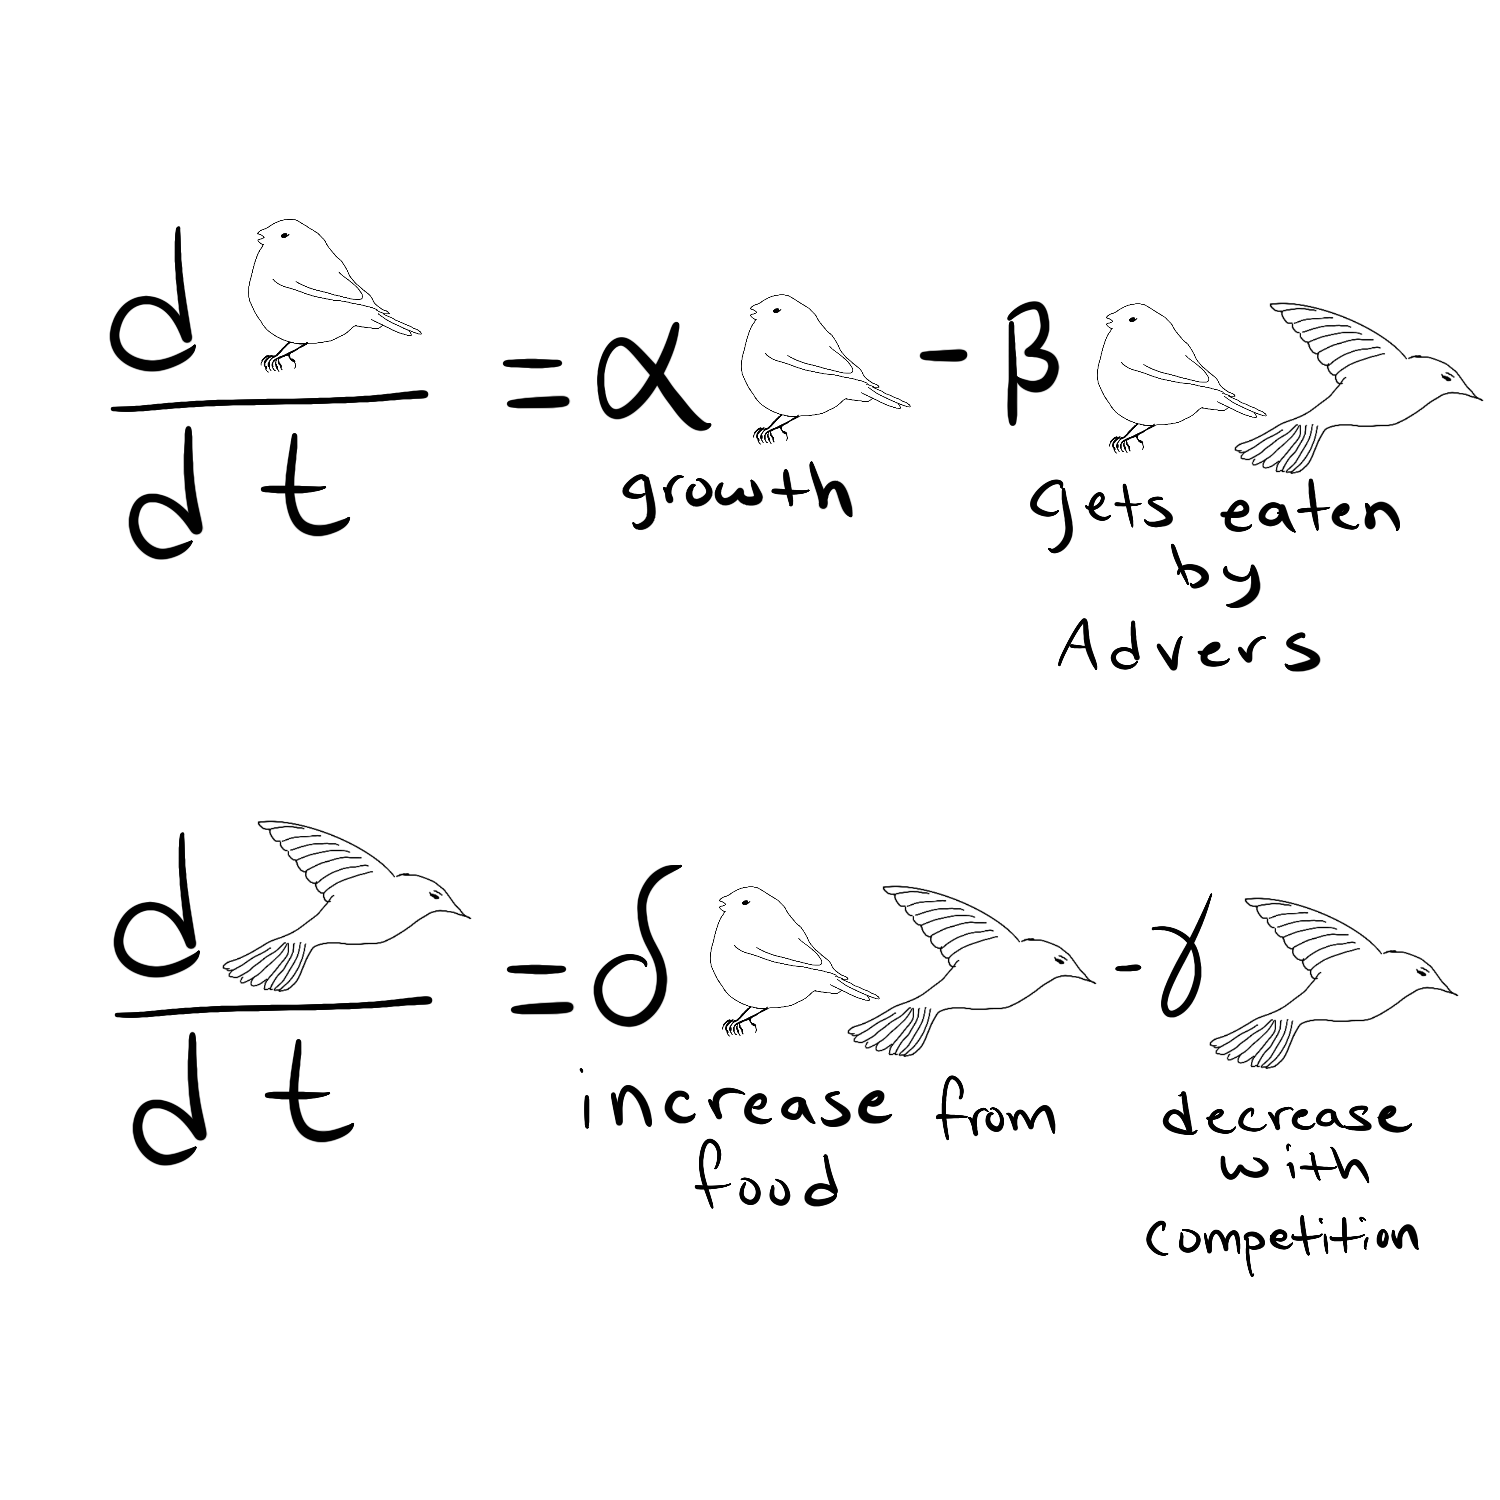 d
= α - β
d t
growth
gets eaten
by
Advers
d
= δ - γ
d t
increase from
food
decrease
with
competition